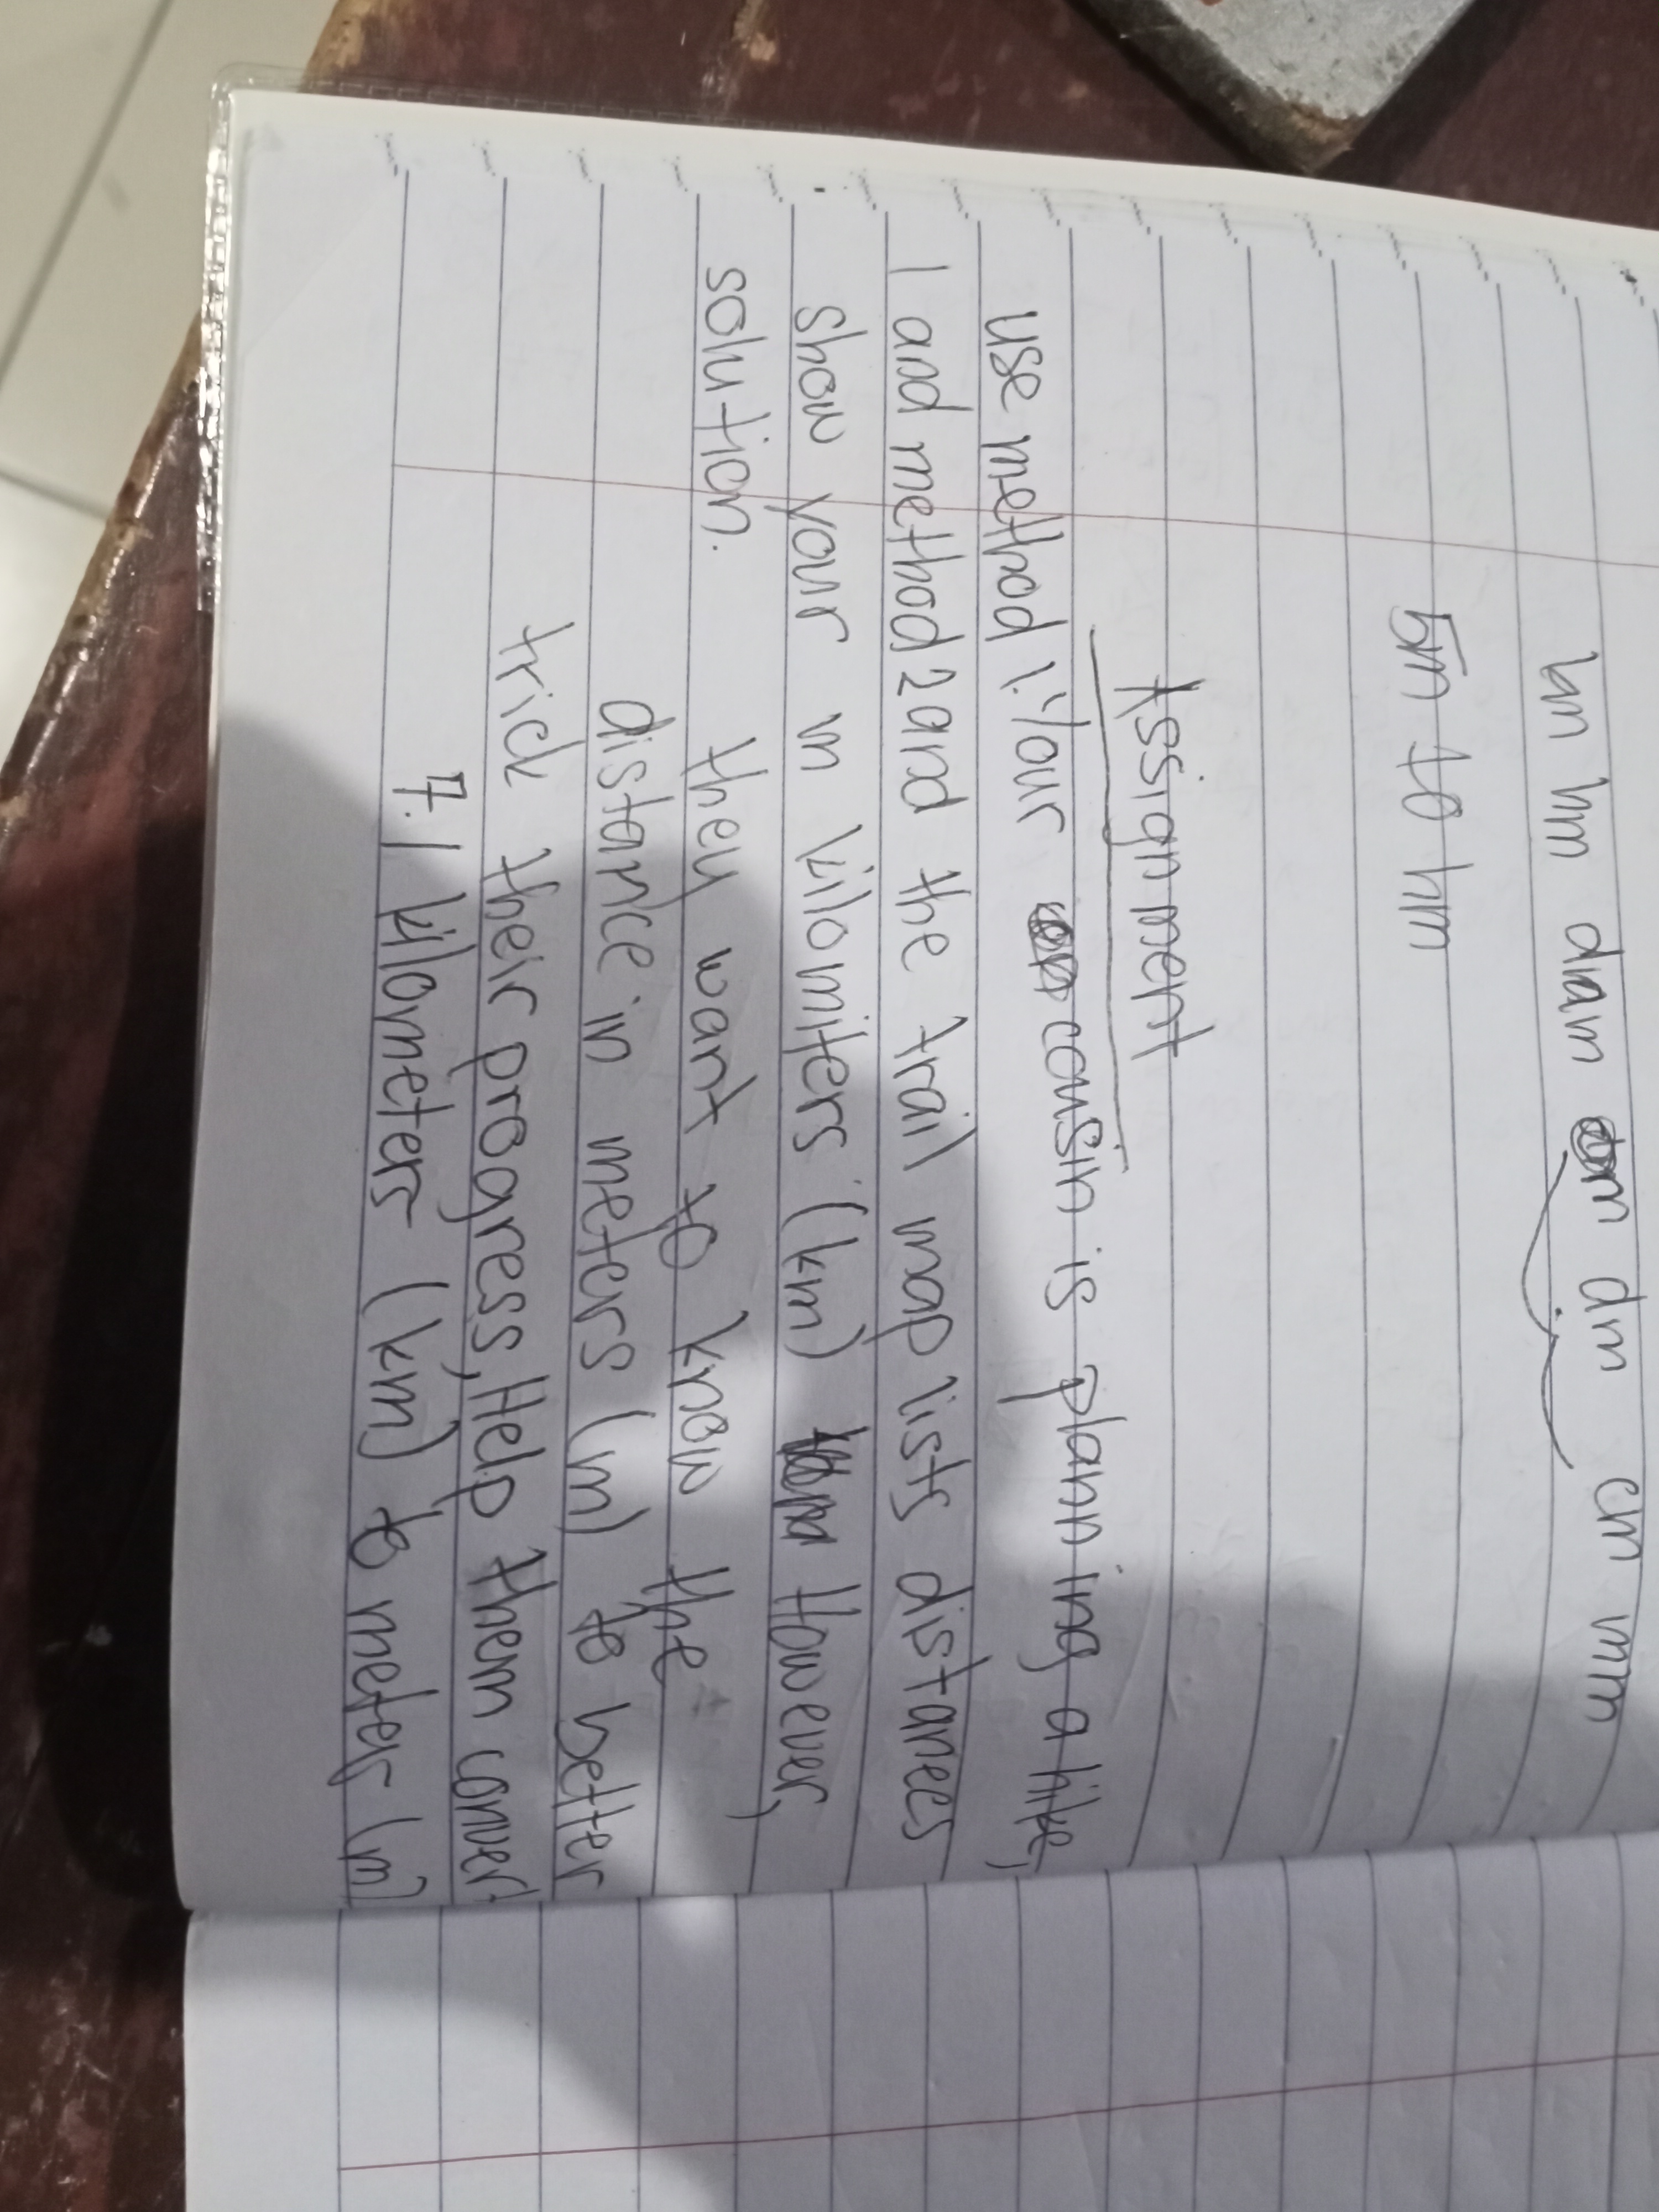 km hm dam m dm cm mm
5m to hm
Assignment
use method 1. Your cousin is planning a hike,
1 and method 2 and the trail map lists distances
show your in kilomiters (km) However,
solution. they want to know the
distance in meters (m) to better
trick their progress, Help them conver
7.1 kilometers (km) to meters (m)